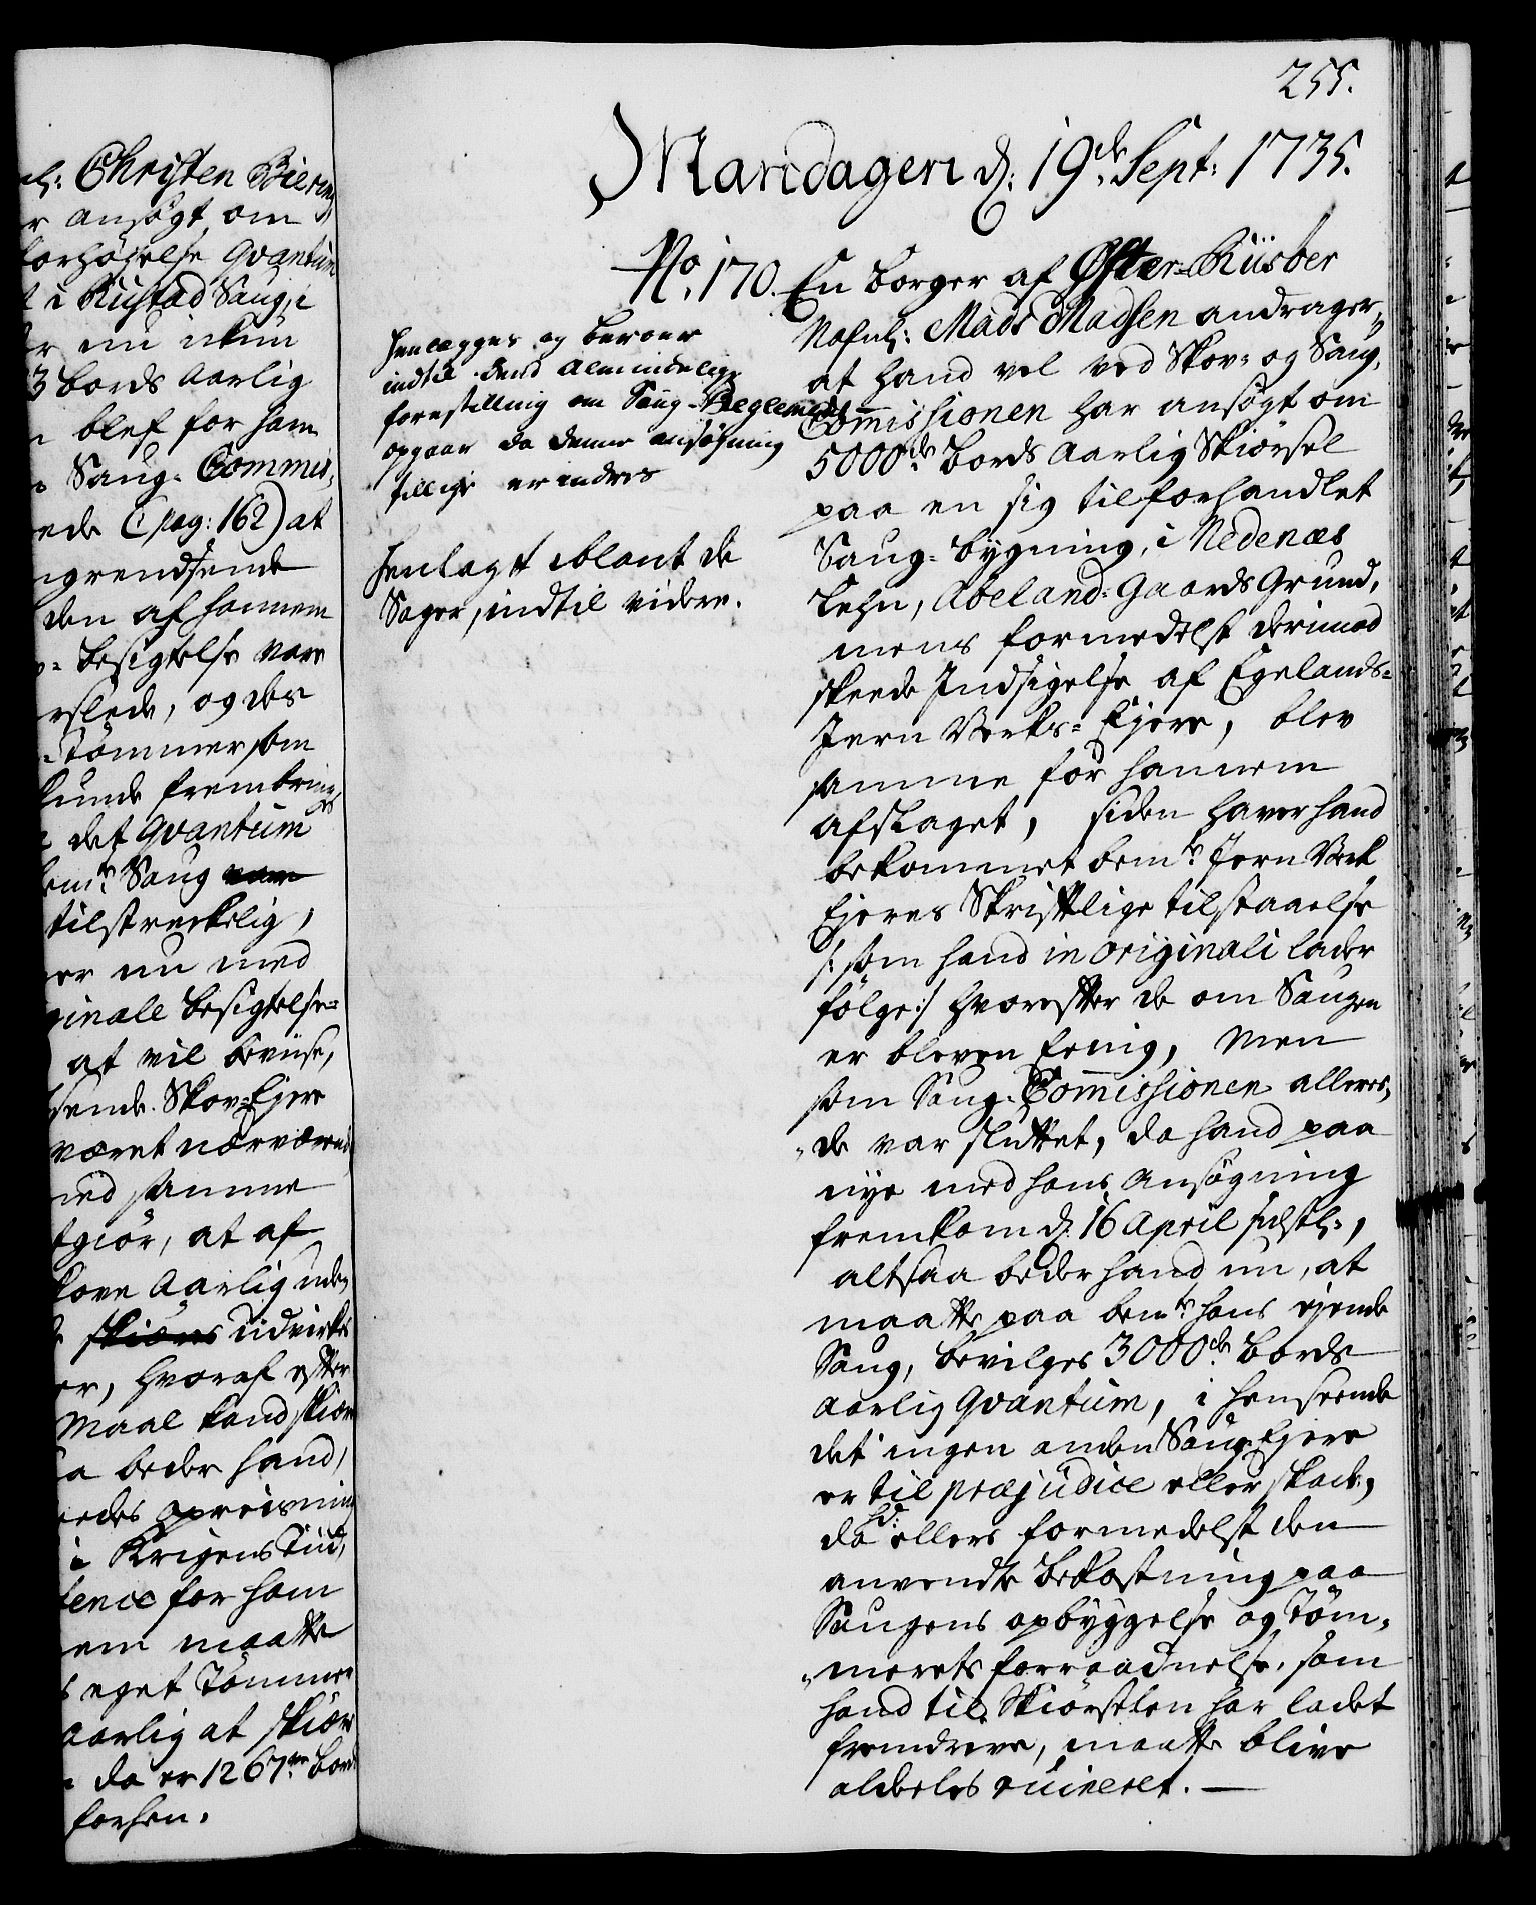 255.
Mandagen d. 19de Sept: 1735.
No. 170. En borger af Øster-Riisøer
Nafnl: Mads Madsen andrager,
at hand vel ved Skov- og Saug-
Commissionen har ansøgt om
5000de bords aarlig Skiørsel
paa en sig tilforhandlet
Saug-bygning, i Nedenæs
Lehn, Abeland-Gaards Grund,
mens formedelst derimod
skeede Indsigelse af Egelands-
Jern Verks-Ejere, blev
samme for hannem
afslaget, siden haver hand
bekommet bemte Jern Verk
Ejeres Skriftlige tilstaaelse
/: som hand in originali lader
følge :/ hvorefter de om Saugen
er bleven Eenig, Men
som Saug-Commissionen allere-
de var sluttet, da hand paa
nye med hans Ansøgning
fremkom d. 16 April sidstl:,
altsaa beder hand nu, at
maatte paa bemte hans ejende
Saug, bevilges 3000de bords
aarlig Qvantum, i henseende
det ingen anden Saug-Ejere
er til præjudice eller skade,
da hd: ellers formedelst den
anvendte bekostning paa
Saugens opbyggelse og Tøm-
merets forraadnelse, som
hand til Skiørselen har ladet
fremdrive, maatte blive
aldeeles ruineret. —
henlegges og beroer
indtil dend Almindelige
forestilling om Saug-Reglementet
opgaar da denne ansøgning
tillige erindres
Henlagt iblant de
Sager, indtil videre.
Christen Biering
r ansøgt om
forhøyelse Qvantum
i Rustad Saug, i
r nu ikun
3 bords Aarlig
blef for ham
Saug-Commis-
ede (pag: 162) at
ngrendsende
den af hannem
besigtelse vare
rslede, og des
Tømmer som
kunde frembringes
det Qvantum
bemte Saug vare
tilstreckelig,
er nu med
ginale besigtelse-
at vil beviise,
sende Skov-Ejere
været nærværende
med samme
tgiør, at af
kove Aarlig uden
skiæres udvirkes
er, hvoraf efter
Maal kand skiære
a beder hand,
eedes opreisning
i Krigens Tiid,
tence for ham
em maatte
s eget Tømmer
aarlig at skiære
da er 1267 bord
forhen.